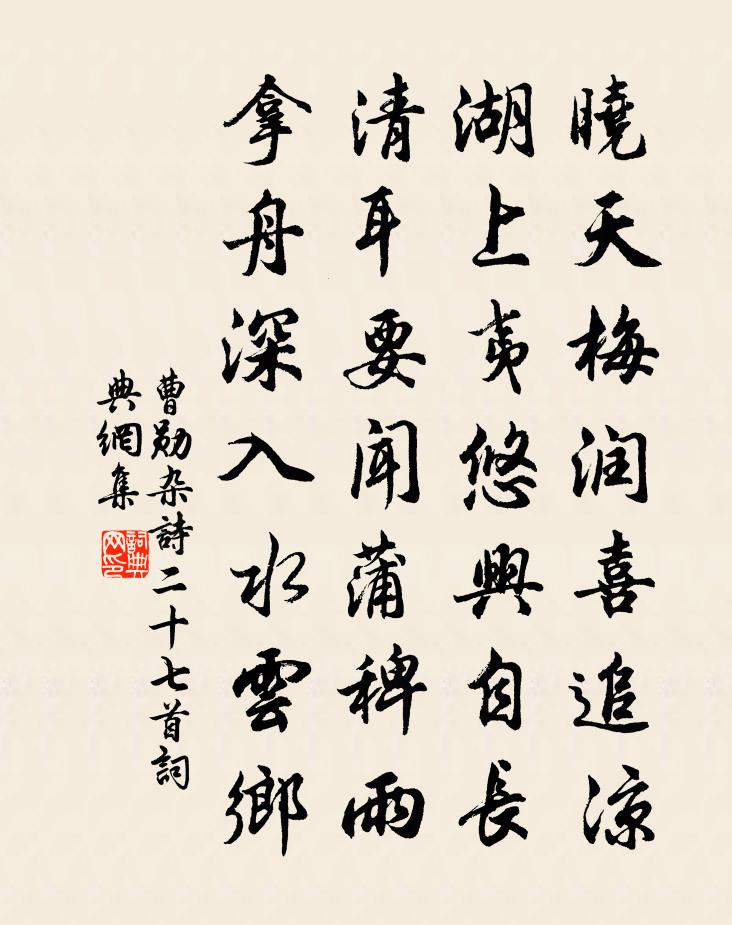 曉天梅润喜追涼
湖上夷悠興自長
清耳要聞蒲稗雨
拿舟深入水雲鄉
曹勛杂詩二十七首詞
典網集
詞典
网印